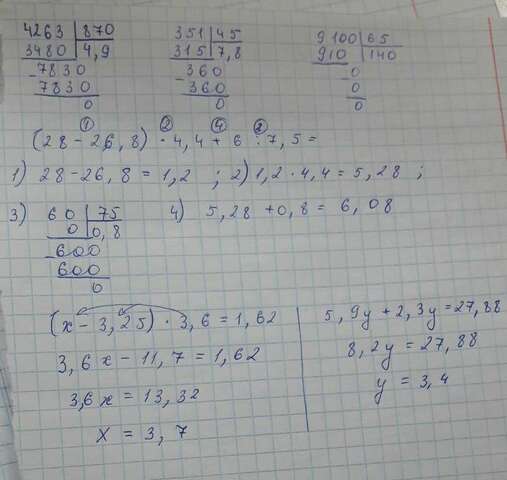 4263 870
3480 4,9
-7830
7830
0
351 45
315 7,8
-360
360
0
9100 65
910 140
-0
0
0
① ② ④ ②
(28-26,8)·4,4+6:7,5=
1) 28-26,8=1,2 ; 2) 1,2·4,4=5,28 ;
3) 60 75
0 0,8
-600
600
0
4) 5,28+0,8=6,08
(x-3,25)·3,6=1,62
3,6x-11,7=1,62
3,6x=13,32
x=3,7
5,9y+2,3y=27,88
8,2y=27,88
y=3,4